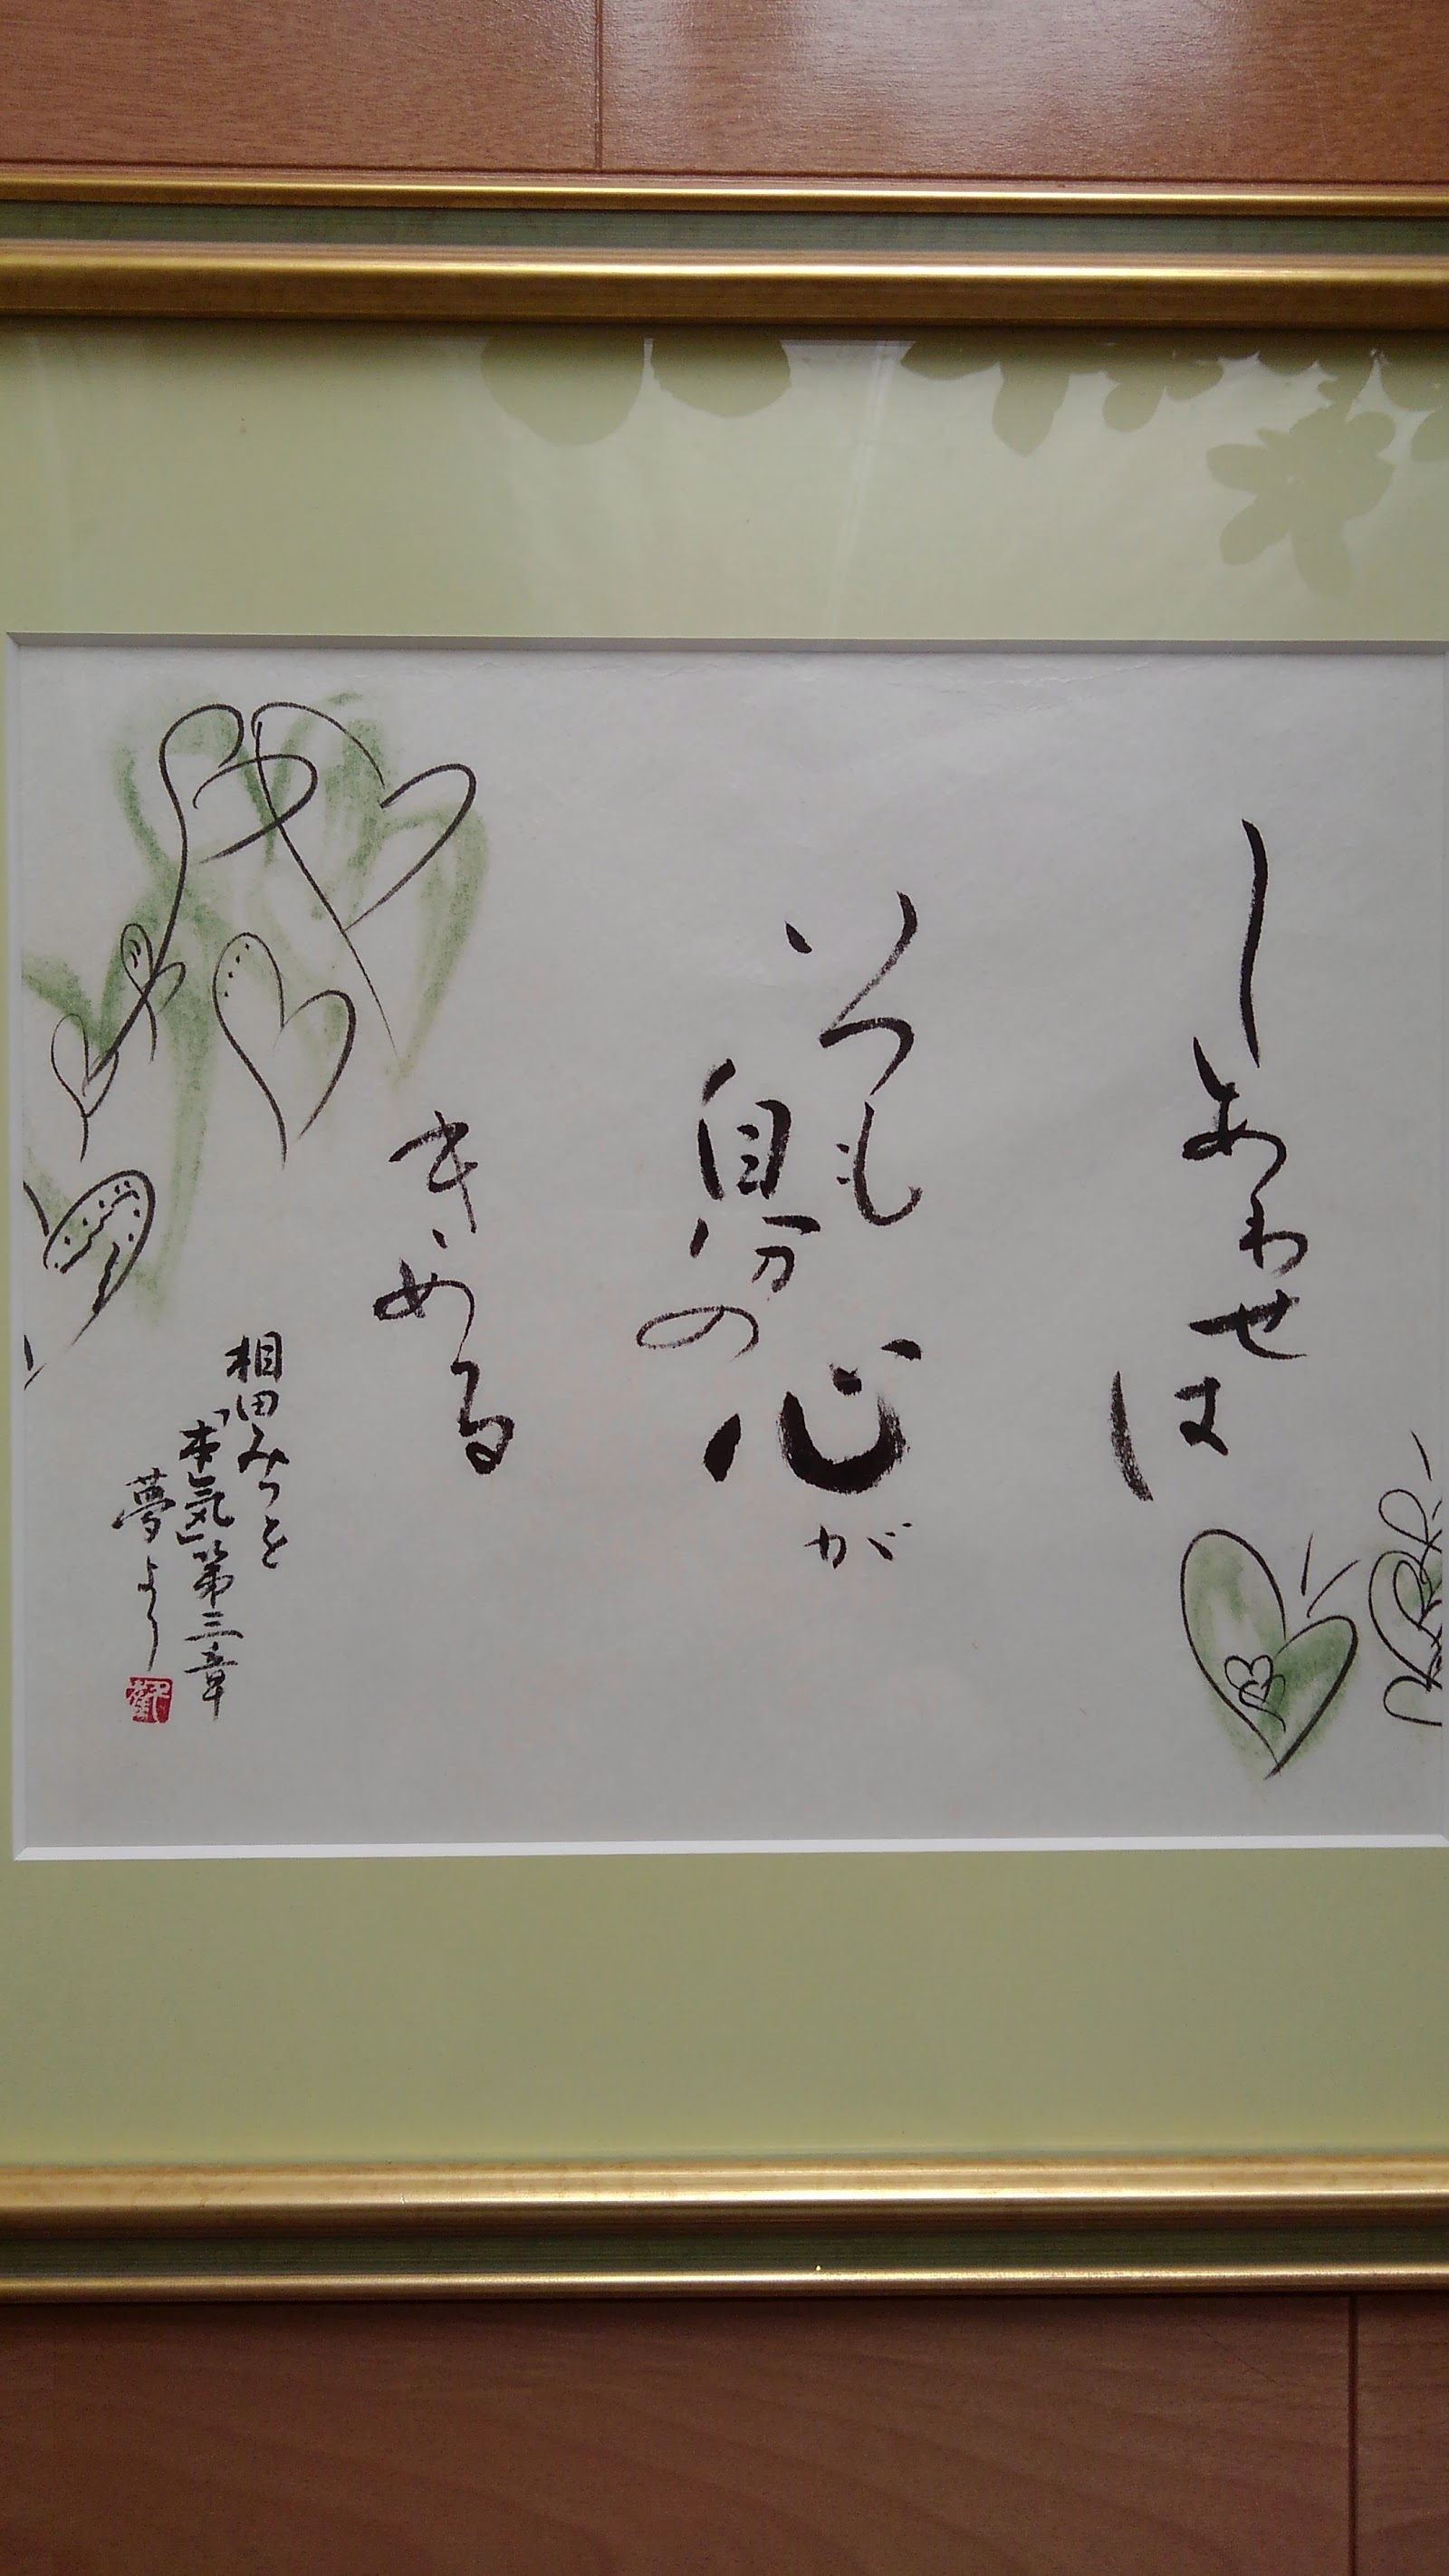 しあわせは
いつも
自分の
心が
きめる
相田みつを
「本気」第三章
夢より